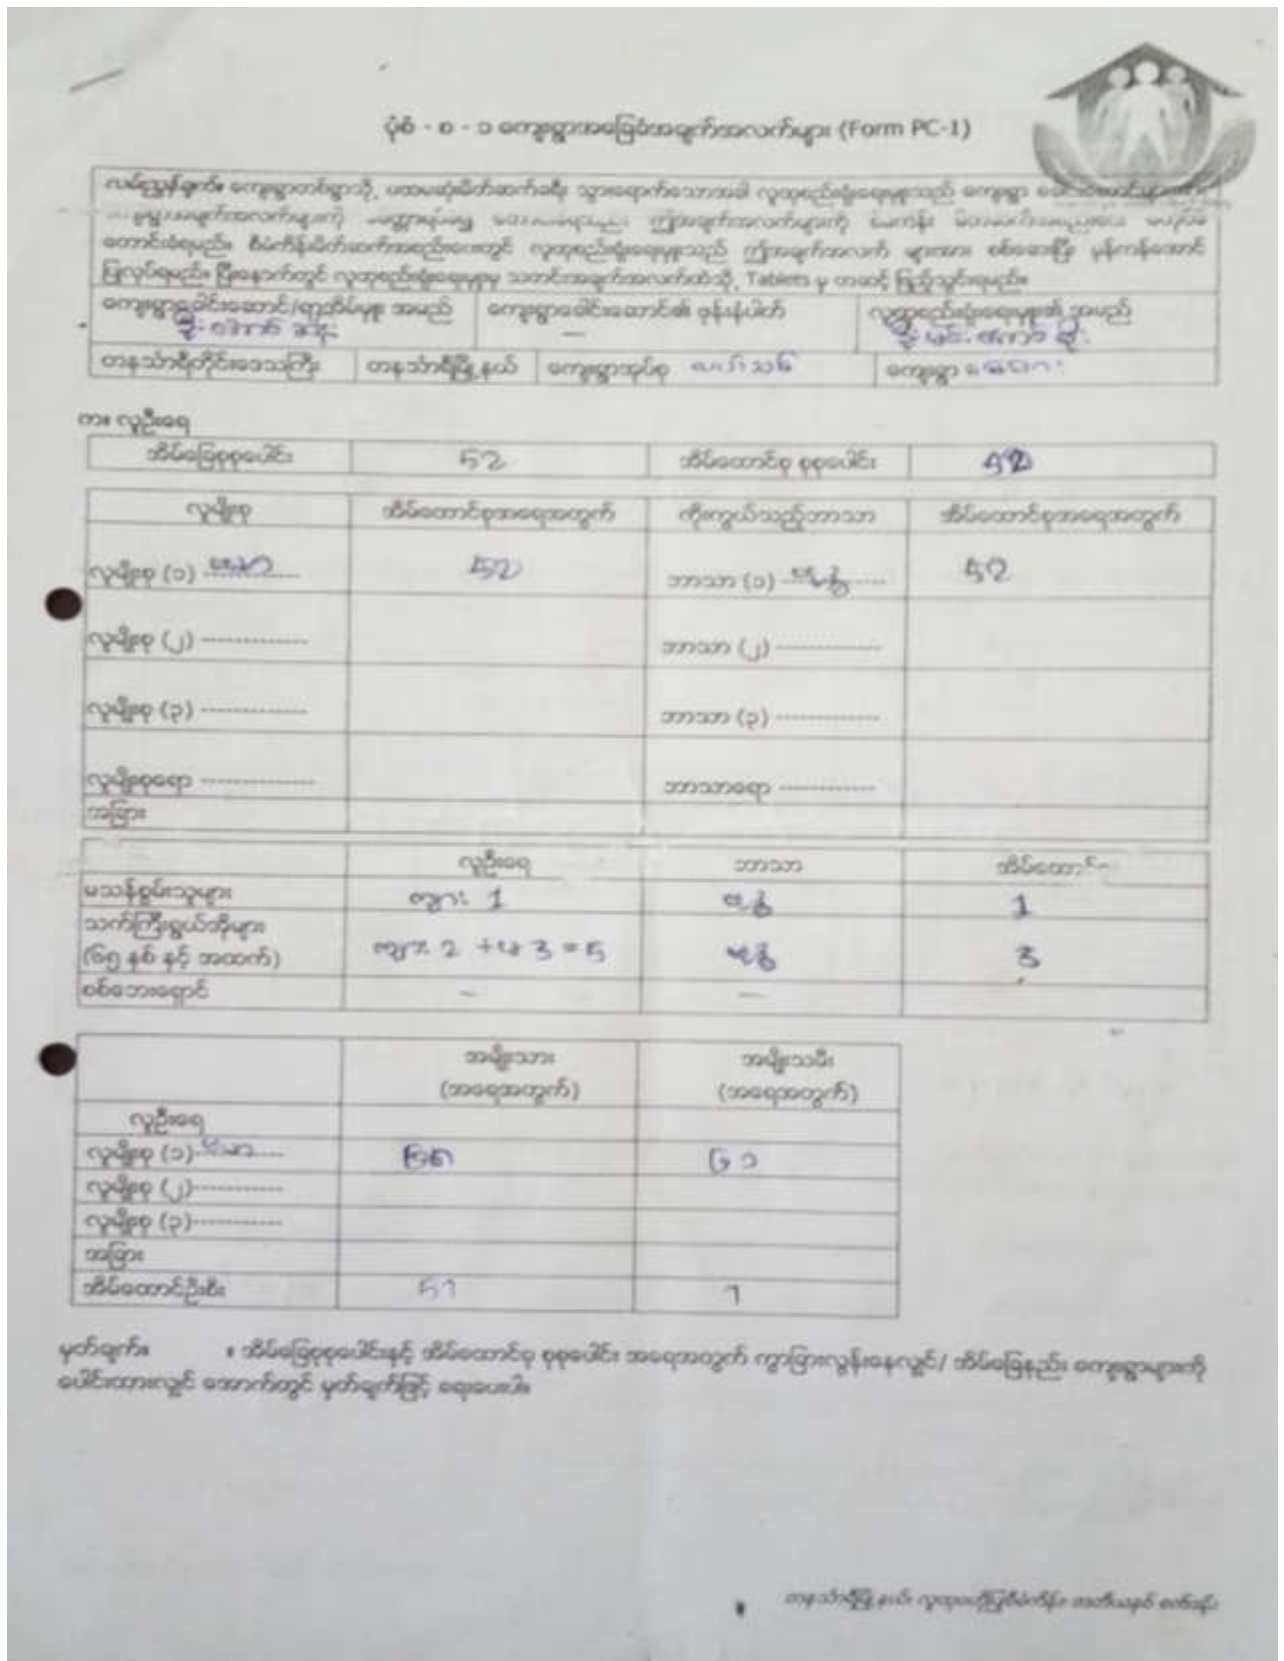 ပုံစံ - ၈ - ၁ ကျေးရွာအခြေခံအချက်အလက်များ (Form PC-1)
လမ်းညွှန်ချက်။ ကျေးရွာတစ်ရွာသို့ ပထမဆုံးမိတ်ဆက်ခရီး သွားရောက်သောအခါ လူထုစည်းရုံးရေးမှူးသည် ကျေးရွာ
အချက်အလက်များကို ဤအချက်အလက်များကို
တောင်းခံရမည်။ စီမံကိန်းမိတ်ဆက်အစည်းဝေးတွင် လူထုစည်းရုံးရေးမှူးသည် ဤအချက်အလက် များအား စစ်ဆေးပြီး မှန်ကန်အောင်
ပြုလုပ်ရမည်။ ပြီးနောက်တွင် လူထုစည်းရုံးရေးမှူးမှ သတင်းအချက်အလက်ထဲသို့ Tablets မှ တဆင့် ဖြည့်သွင်းရမည်။
ကျေးရွာခေါင်းဆောင်/ရာအိမ်မှူး အမည် ကျေးရွာခေါင်းဆောင်၏ ဖုန်းနံပါတ် လူထုစည်းရုံးရေးမှူး၏ အမည်
တနင်္သာရီတိုင်းဒေသကြီး တနင်္သာရီမြို့နယ် ကျေးရွာအုပ်စု ကျေးရွာ
က။ လူဦးရေ
အိမ်ခြေစုစုပေါင်း 52 အိမ်ထောင်စု စုစုပေါင်း 52
လူမျိုးစု အိမ်ထောင်စုအရေအတွက် ကိုးကွယ်သည့်ဘာသာ အိမ်ထောင်စုအရေအတွက်
လူမျိုးစု (၁) ဗမာ 52 ဘာသာ (၁) ဗုဒ္ဓ 52
လူမျိုးစု (၂) -------------- ဘာသာ (၂) --------------
လူမျိုးစု (၃) -------------- ဘာသာ (၃) --------------
လူမျိုးစုရော -------------- ဘာသာရော -------------
အခြား
လူဦးရေ ဘာသာ အိမ်ထောင်
မသန်စွမ်းသူများ ကျား 1 ဗုဒ္ဓ 1
သက်ကြီးရွယ်အိုများ
(၆၅ နှစ် နှင့် အထက်) ကျား 2 + မ 3 = 5 ဗုဒ္ဓ 3
စစ်ဘေးရှောင် – –
အမျိုးသား အမျိုးသမီး
(အရေအတွက်) (အရေအတွက်)
လူဦးရေ
လူမျိုးစု (၁) ဗမာ ၆၁
လူမျိုးစု (၂)------------
လူမျိုးစု (၃)------------
အခြား
အိမ်ထောင်ဦးစီး 51 1
မှတ်ချက်။ ။ အိမ်ခြေစုစုပေါင်းနှင့် အိမ်ထောင်စု စုစုပေါင်း အရေအတွက် ကွာခြားလွန်းနေလျှင်/ အိမ်ခြေနည်း ကျေးရွာများကို
ပေါင်းထားလျှင် အောက်တွင် မှတ်ချက်ဖြင့် ရေးပေးပါ။
တနင်္သာရီမြို့နယ်၊ လူထုဗဟိုပြုစီမံကိန်း၊ ဒုတိယနှစ် စက်ဝန်း